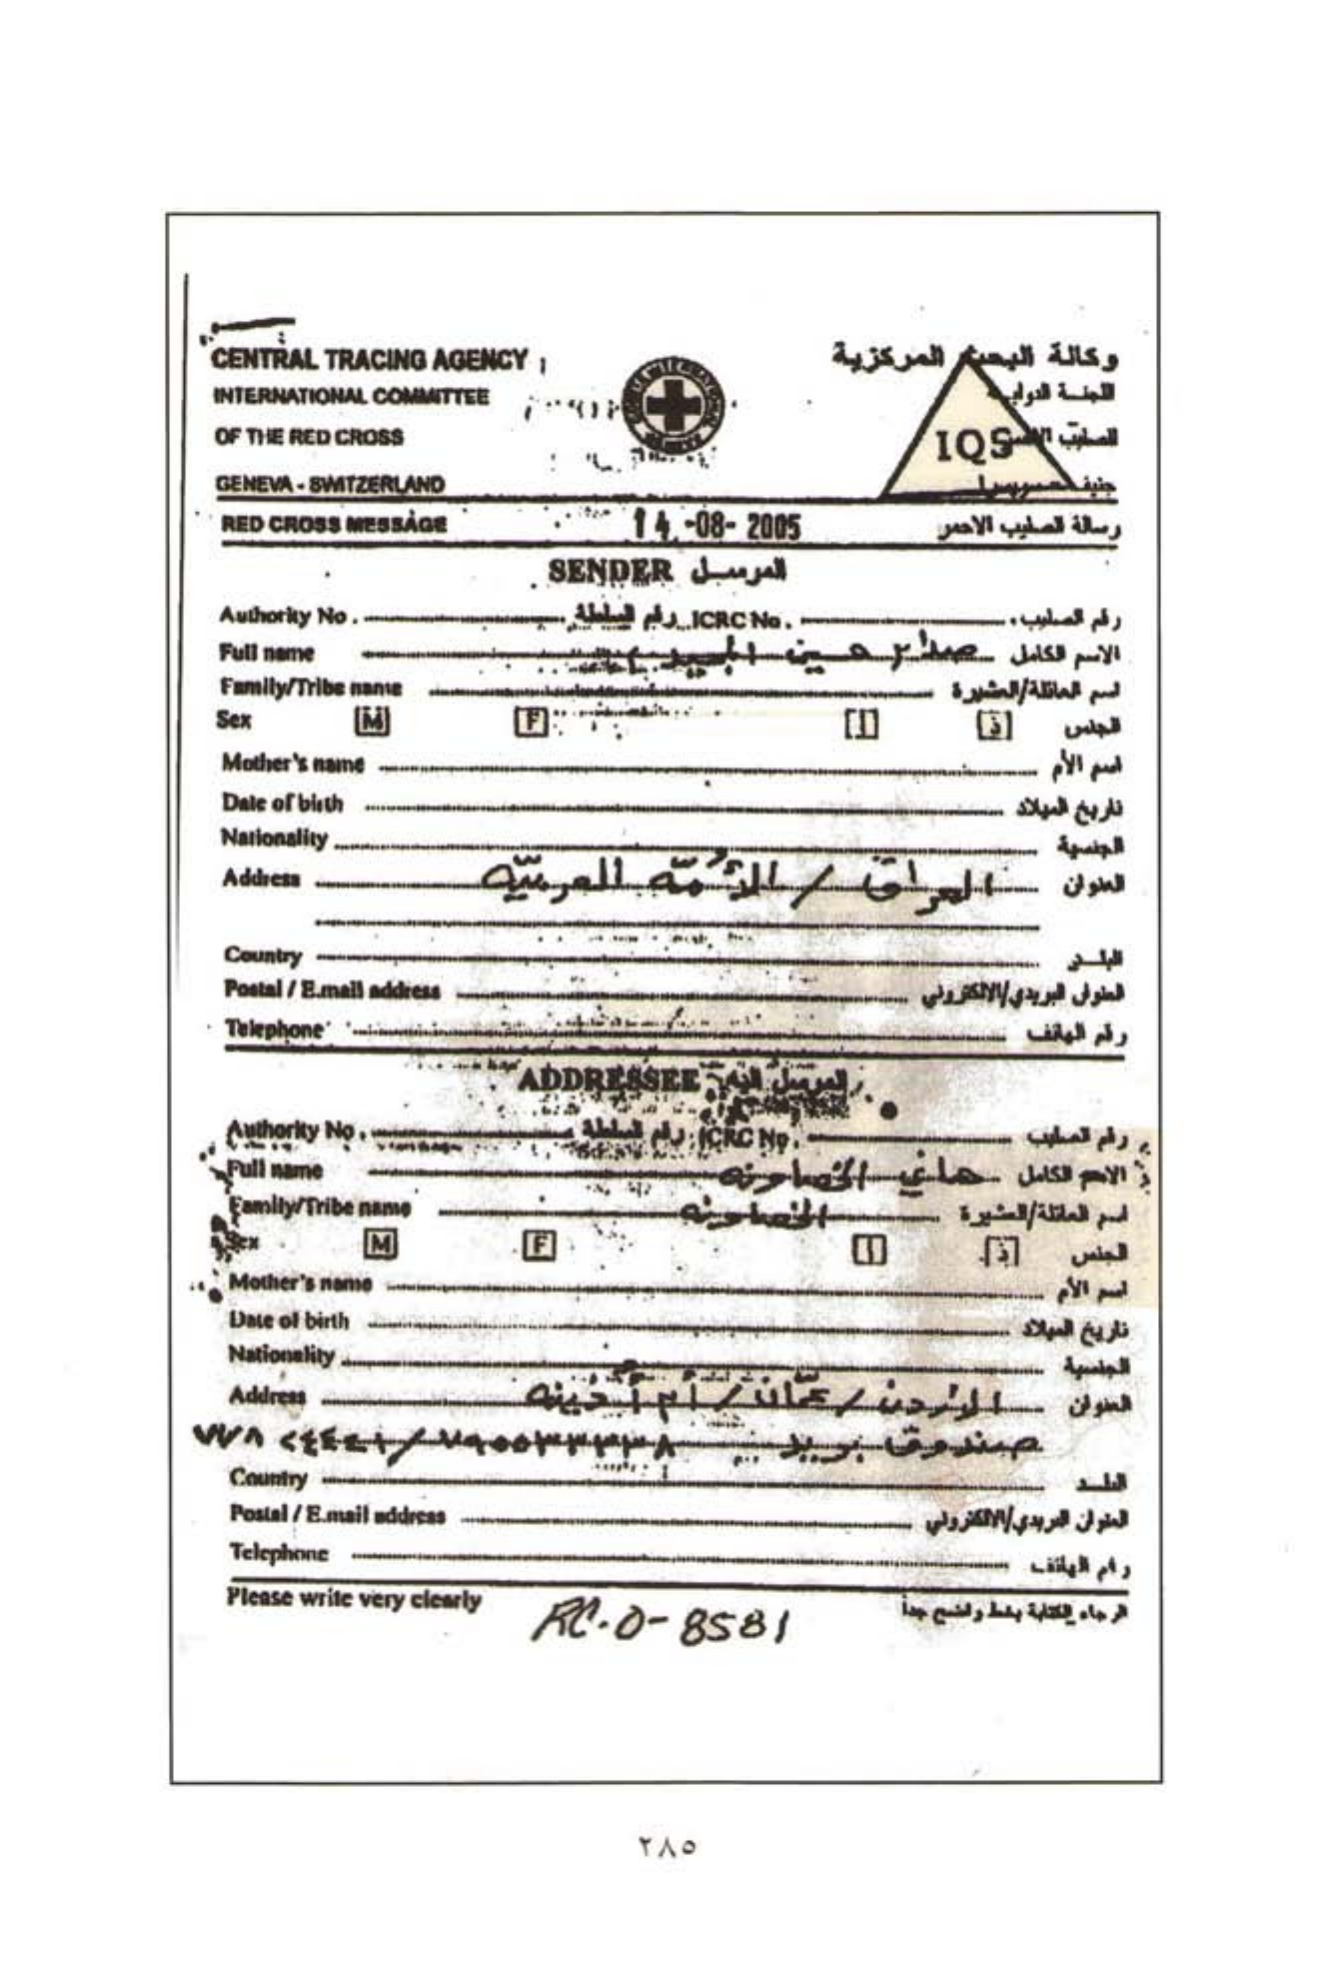 CENTRAL TRACING AGENCY وكالة البحث المركزية
INTERNATIONAL COMMITTEE اللجنة الدولية
OF THE RED CROSS للصليب
IQS
GENEVA - SWITZERLAND
RED CROSS MESSAGE 14-08-2005 رسالة الصليب الاحمر
SENDER المرسل
Authority No. رقم السلطة ICRC No. رقم الصليب
Full name صدام حسين المجيد الاسم الكامل
Family/Tribe name اسم العائلة/العشيرة
Sex M F أ ذ الجنس
Mother's name اسم الأم
Date of birth تاريخ الميلاد
Nationality الجنسية
Address العراق / الأُمّة العربيّة العنوان
Country البلد
Postal / E.mail address العنوان البريدي/الالكتروني
Telephone رقم الهاتف
ADDRESSEE المرسل اليه
Authority No. رقم السلطة ICRC No. رقم الصليب
Full name هاني الخصاونه الاسم الكامل
Family/Tribe name الخصاونه اسم العائلة/العشيرة
Sex M F أ ذ الجنس
Mother's name اسم الأم
Date of birth تاريخ الميلاد
Nationality الجنسية
Address الأردن / عمّان / أم أُذينه العنوان
صندوق بريد
Country البلد
Postal / E.mail address العنوان البريدي/الالكتروني
Telephone رقم الهاتف
Please write very clearly الرجاء الكتابة بخط واضح جداً
RC-0-8581
٢٨٥